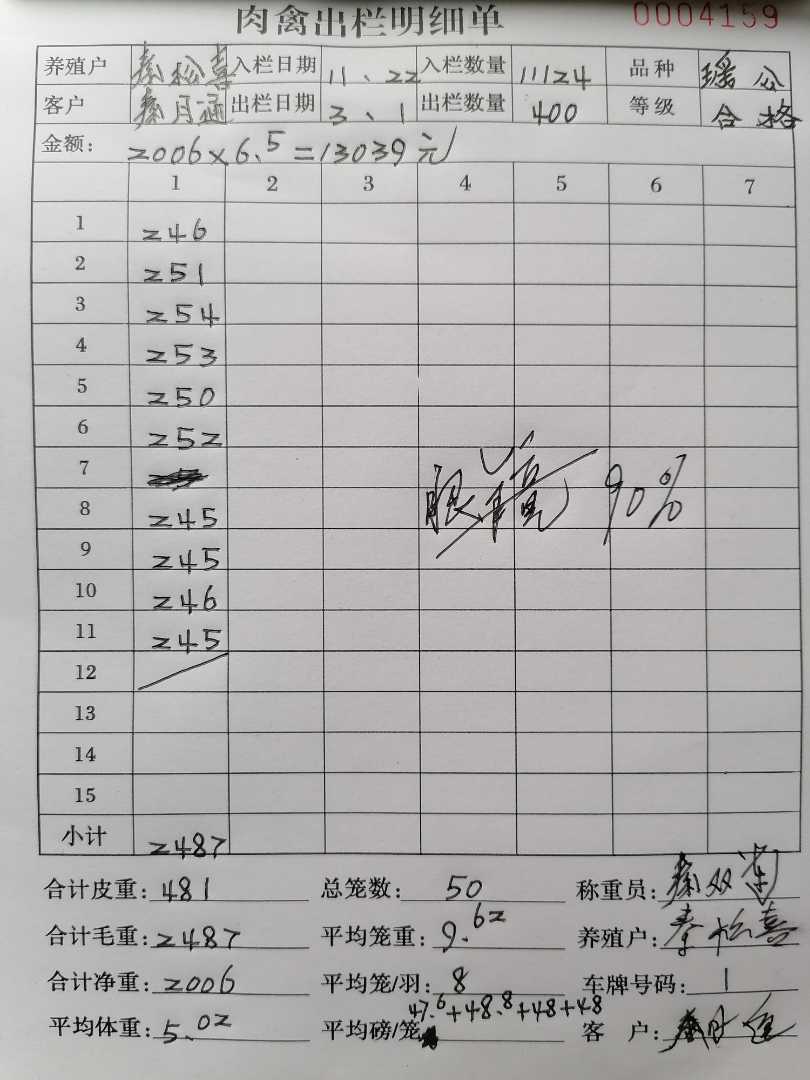 肉禽出栏明细单 0004159
养殖户 秦松喜 入栏日期 11、22 入栏数量 11124 品种 瑶公
客户 秦月函 出栏日期 3、1 出栏数量 400 等级 合格
金额: 2006×6.5=13039元
1 2 3 4 5 6 7
1 246
2 251
3 254
4 253
5 250
6 252
7
8 245
眼镜 90%
9 245
10 246
11 245
12
13
14
15
小计 2487
合计皮重: 481 总笼数: 50 称重员: 秦双
合计毛重: 2487 平均笼重: 9.62 养殖户: 秦松喜
合计净重: 2006 平均笼/羽: 8 车牌号码: 1
平均体重: 5.02 平均磅/笼 47.6+48.8+48+48 客 户: